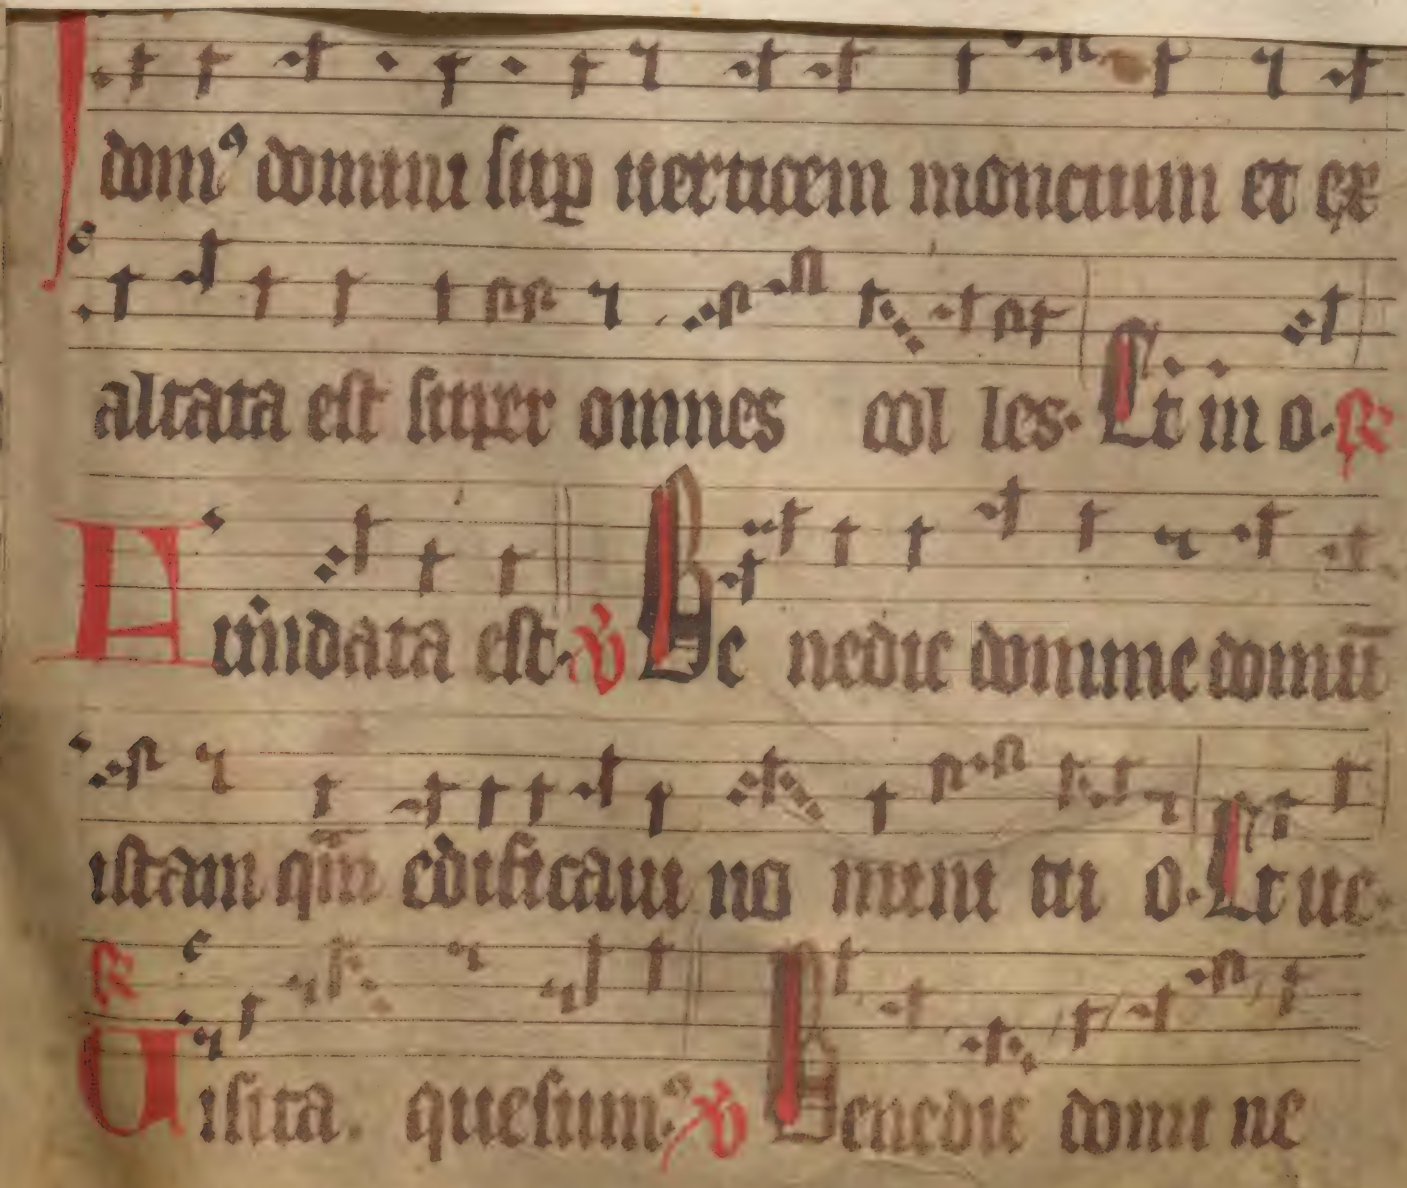 domꝰ domini suꝑ uerticem moncium et ex
altata est super omnes col les. Et in o. R
Fundata est. V Be nedic domine domū
istam qm̄ edificaui no mini tu o. Et ue.
R
Uisita. quesumꝰ. V Benedic domi ne